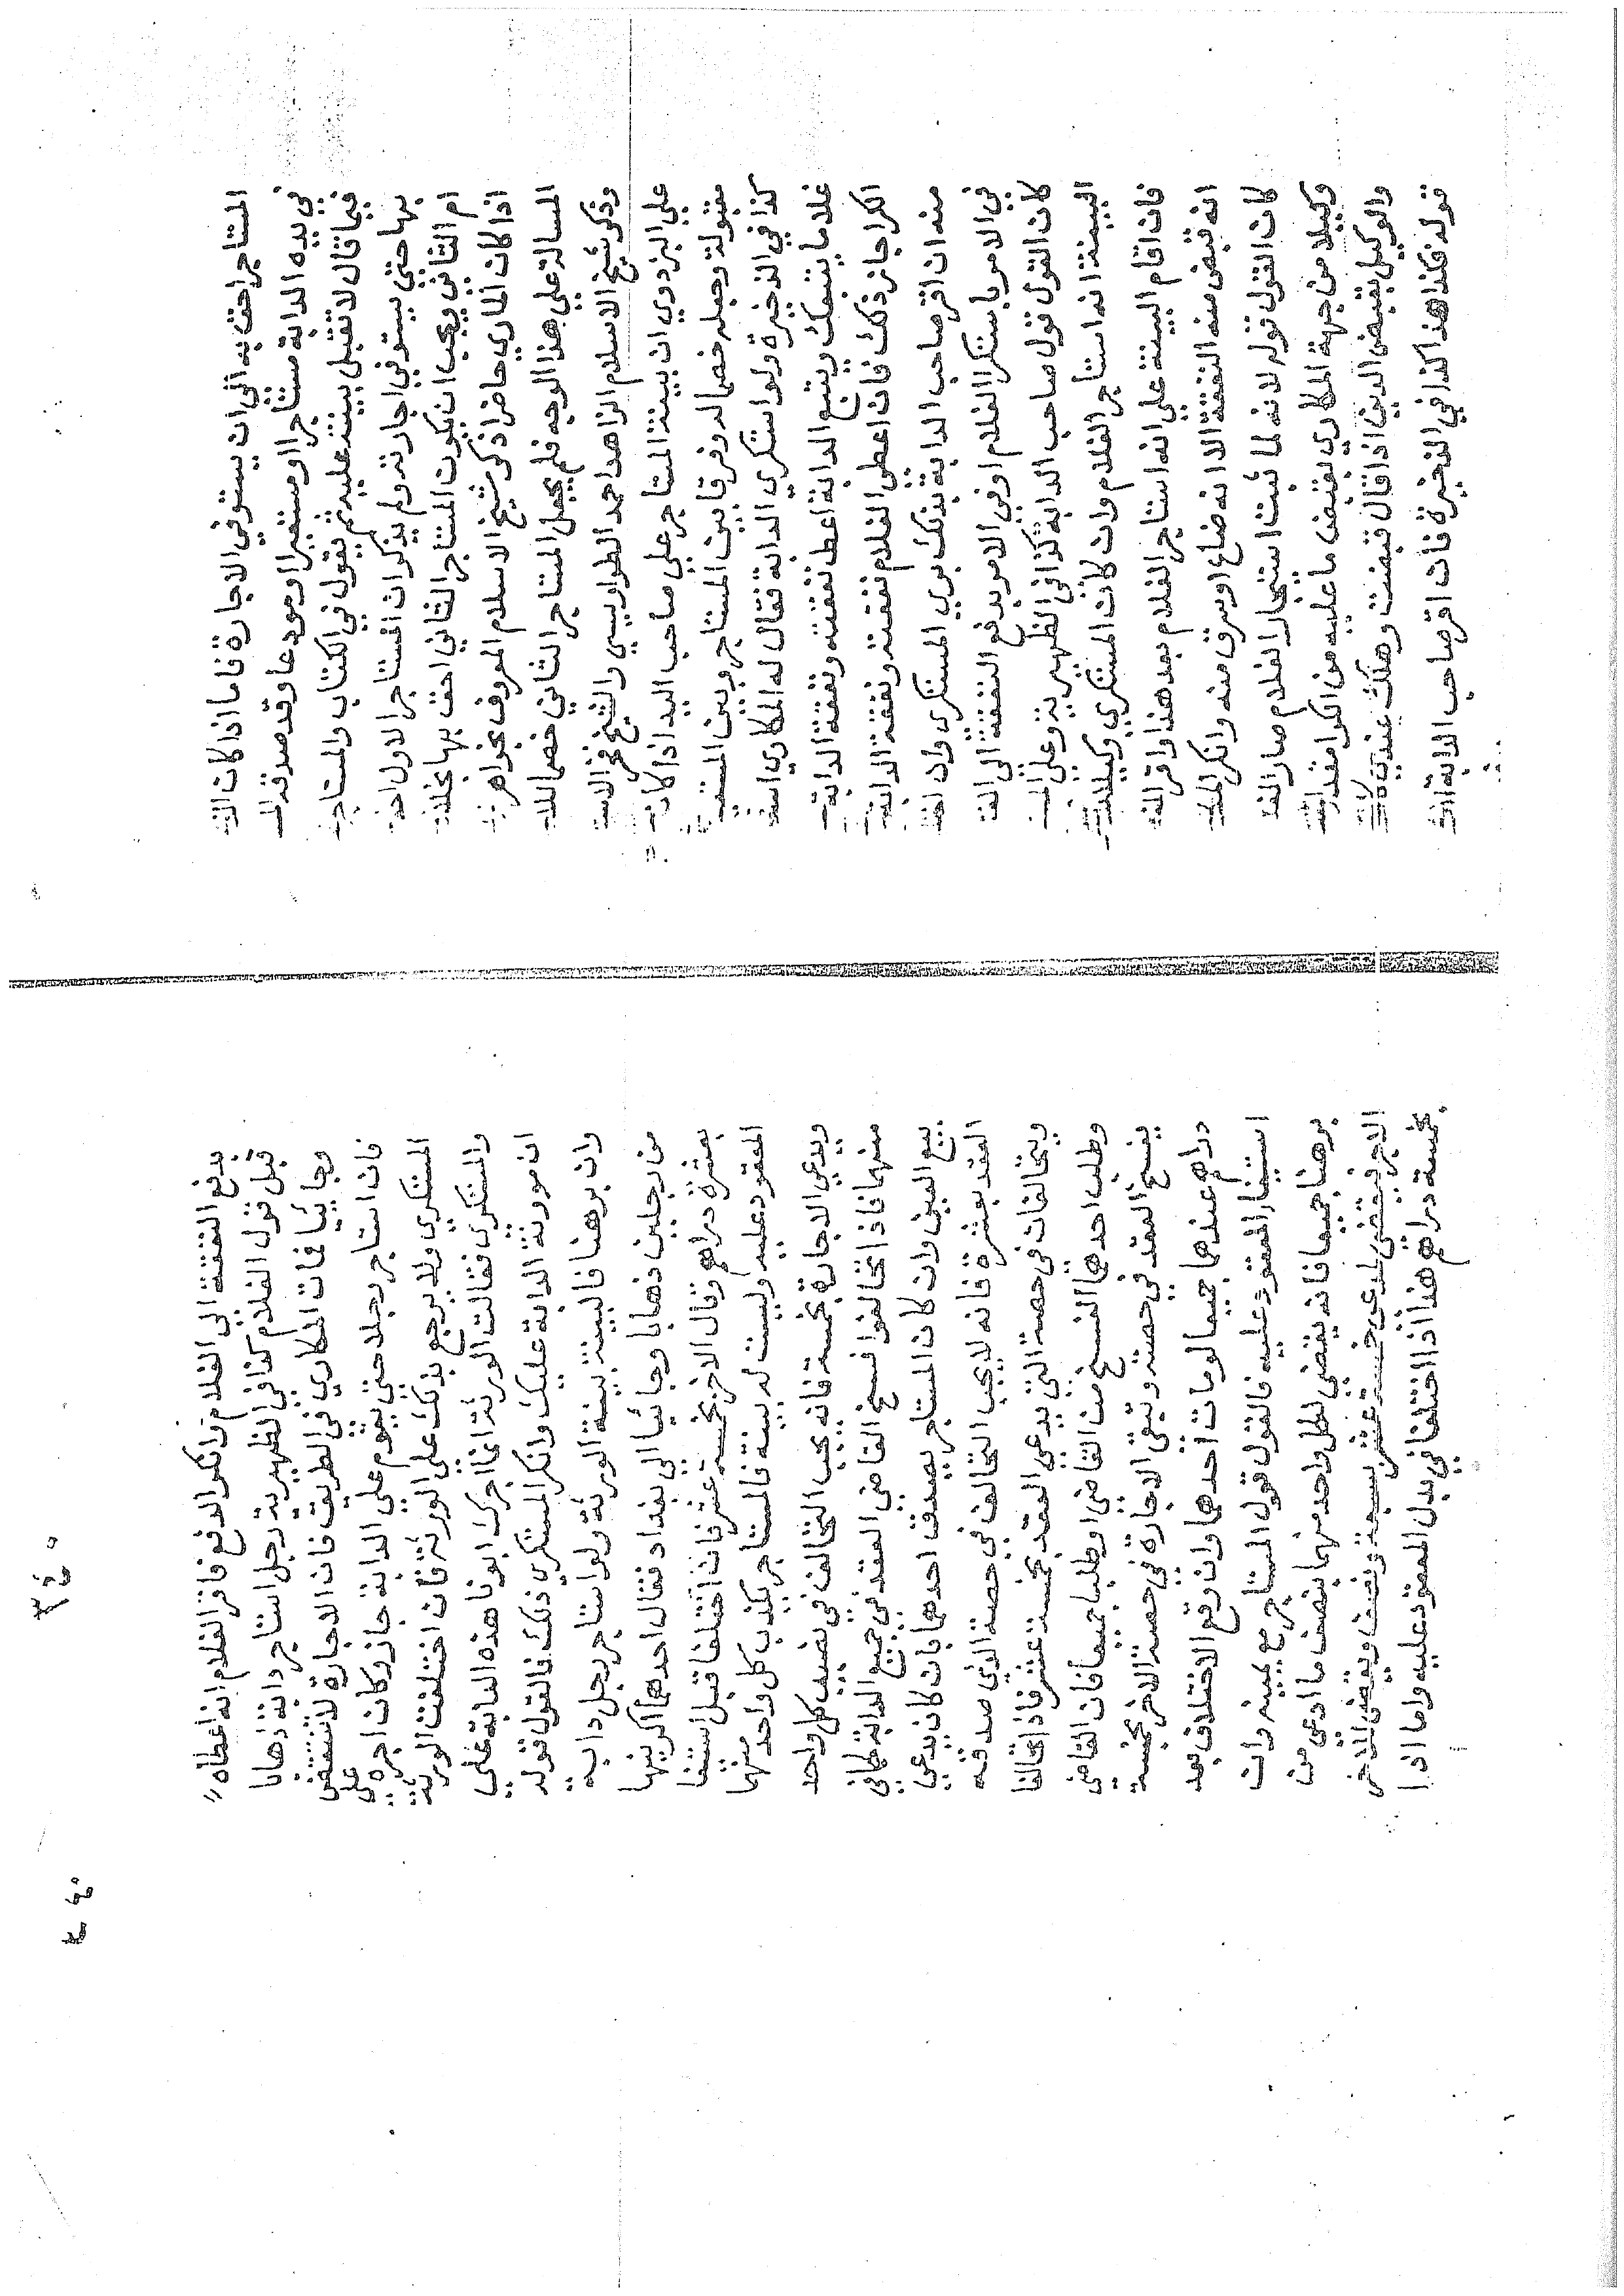 المستاجر احق به الى ان يستوفي الاجارة فاما اذا كان
في يده الدابة مستاجرا او مستعيرا او مودعا وقد صدقه
فيما قال لا تقبل بينته عليه ثم يقول في الكتاب والمستاجر
بها حتى يستوفي اجارته ولم يذكر ان المستاجر الاول احق
ام الثاني ويجب ان يكون المستاجر الثاني احق بها بخلاف
اذا كان المكاري حاضرا ذكر شيخ الاسلام المعروف بخواهر
المسالة على هذا الوجه فلم يجعل المستاجر الثاني خصما
وذكر شيخ الاسلام الزاهد احمد الطواويسي والشيخ فخر الاسلام
علي البزدوي ان بينة المستاجر على صاحب اليد اذا كان
مقبولة وجعله خصما له وفرقا بين المستاجر وبين المستعير
كذا في الذخيرة ولو استكرى الدابة فقال له المكاري
غلاما يتبعك ويتبع الدابة اعط نفقته ونفقة الدابة
الكرا جاز ذلك فان اعطى الغلام نفقته ونفقة الدابة
منه ان اقر صاحب الدابة بذلك بري المستكري وان
في الامر باستكرا الغلام او في الامر بدفع النفقة الى
كان القول قول صاحب الدابة كذا في الظهيرية وعلى
البينة انه استاجر الغلام وان كان المستكري وكيلا
فان اقام البينة على انه استاجر الغلام بعد هذا واقر
انه قبض منه النفقة الا انه ضاع او سرق منه وانكر
كان القول قوله لانه لما ثبت استئجار الغلام صار
وكيلا من جهة المكاري بقبض ما عليه من الكرا مقدار
والوكيل بقبض الدين اذا قال قبضت وهلك عندي كان
قوله فكذا هذا كذا في الذخيرة فان اقر صاحب الدابة انه
بدفع النفقة الى الغلام وانكر الدفع فاقر الغلام انه اعطاه
قبل قول الغلام كذا في الظهيرية رجل استاجر دابة ذاهبا
وجائيا فمات المكاري في الطريق فان الاجارة لا تنتقض
فان استاجر رجلا حتى يقوم على الدابة جاز وكان اجره على
المستكري ولا يرجع بذلك على الورثة فان اختلفت الورثة
والمستكري فقالت الورثة انما اجرك ابونا هذه الدابة على
ان موونة الدابة عليك وانكر المستكري ذلك فالقول قوله
وان برهنا فالبينة بينة الورثة ولو استاجر رجل دابة
من رجلين ذاهبا وجائيا الى بغداد فقال احدهما اكريتها
بعشرة دراهم وقال الاخر بخمسة عشر فان اختلفا قبل استيفا
المعقود عليه وليست له بينة فالمستاجر يكذب كل واحد منهما
ويدعي الاجارة بخمسة فانه يجب التحالف في نصيب كل واحد
منهما فاذا تحالفوا فسخ القاضي العقد في جميع الدابة كما في
بيع العين وان كان المستاجر يصدق احدهما بان كان يدعي
العقد بعشرة فانه لا يجب التحالف في حصة الذي صدقه
ويتحالفان في حصة الذي يدعي العقد بخمسة عشر فاذا تحالفا
وطلب احدهما الفسخ من القاضي او طلبا جميعا فان القاضي
يفسخ العقد في حصته وتبقى الاجارة في حصة الاخر بخمسة
دراهم عندهما جميعا لو مات احدهما وان وقع الاختلاف بعد
استيفا المعقود عليه فالقول قول المستاجر مع يمينه وان
برهنا جميعا فانه يقضى لكل واحد منهما بنصف ما ادعى من
الاجر فيقضى لمدعي خمسة عشر بسبعة ونصف ويقضى للاخر
بخمسة دراهم هذا اذا اختلفا في بدل المعقود عليه واما اذا